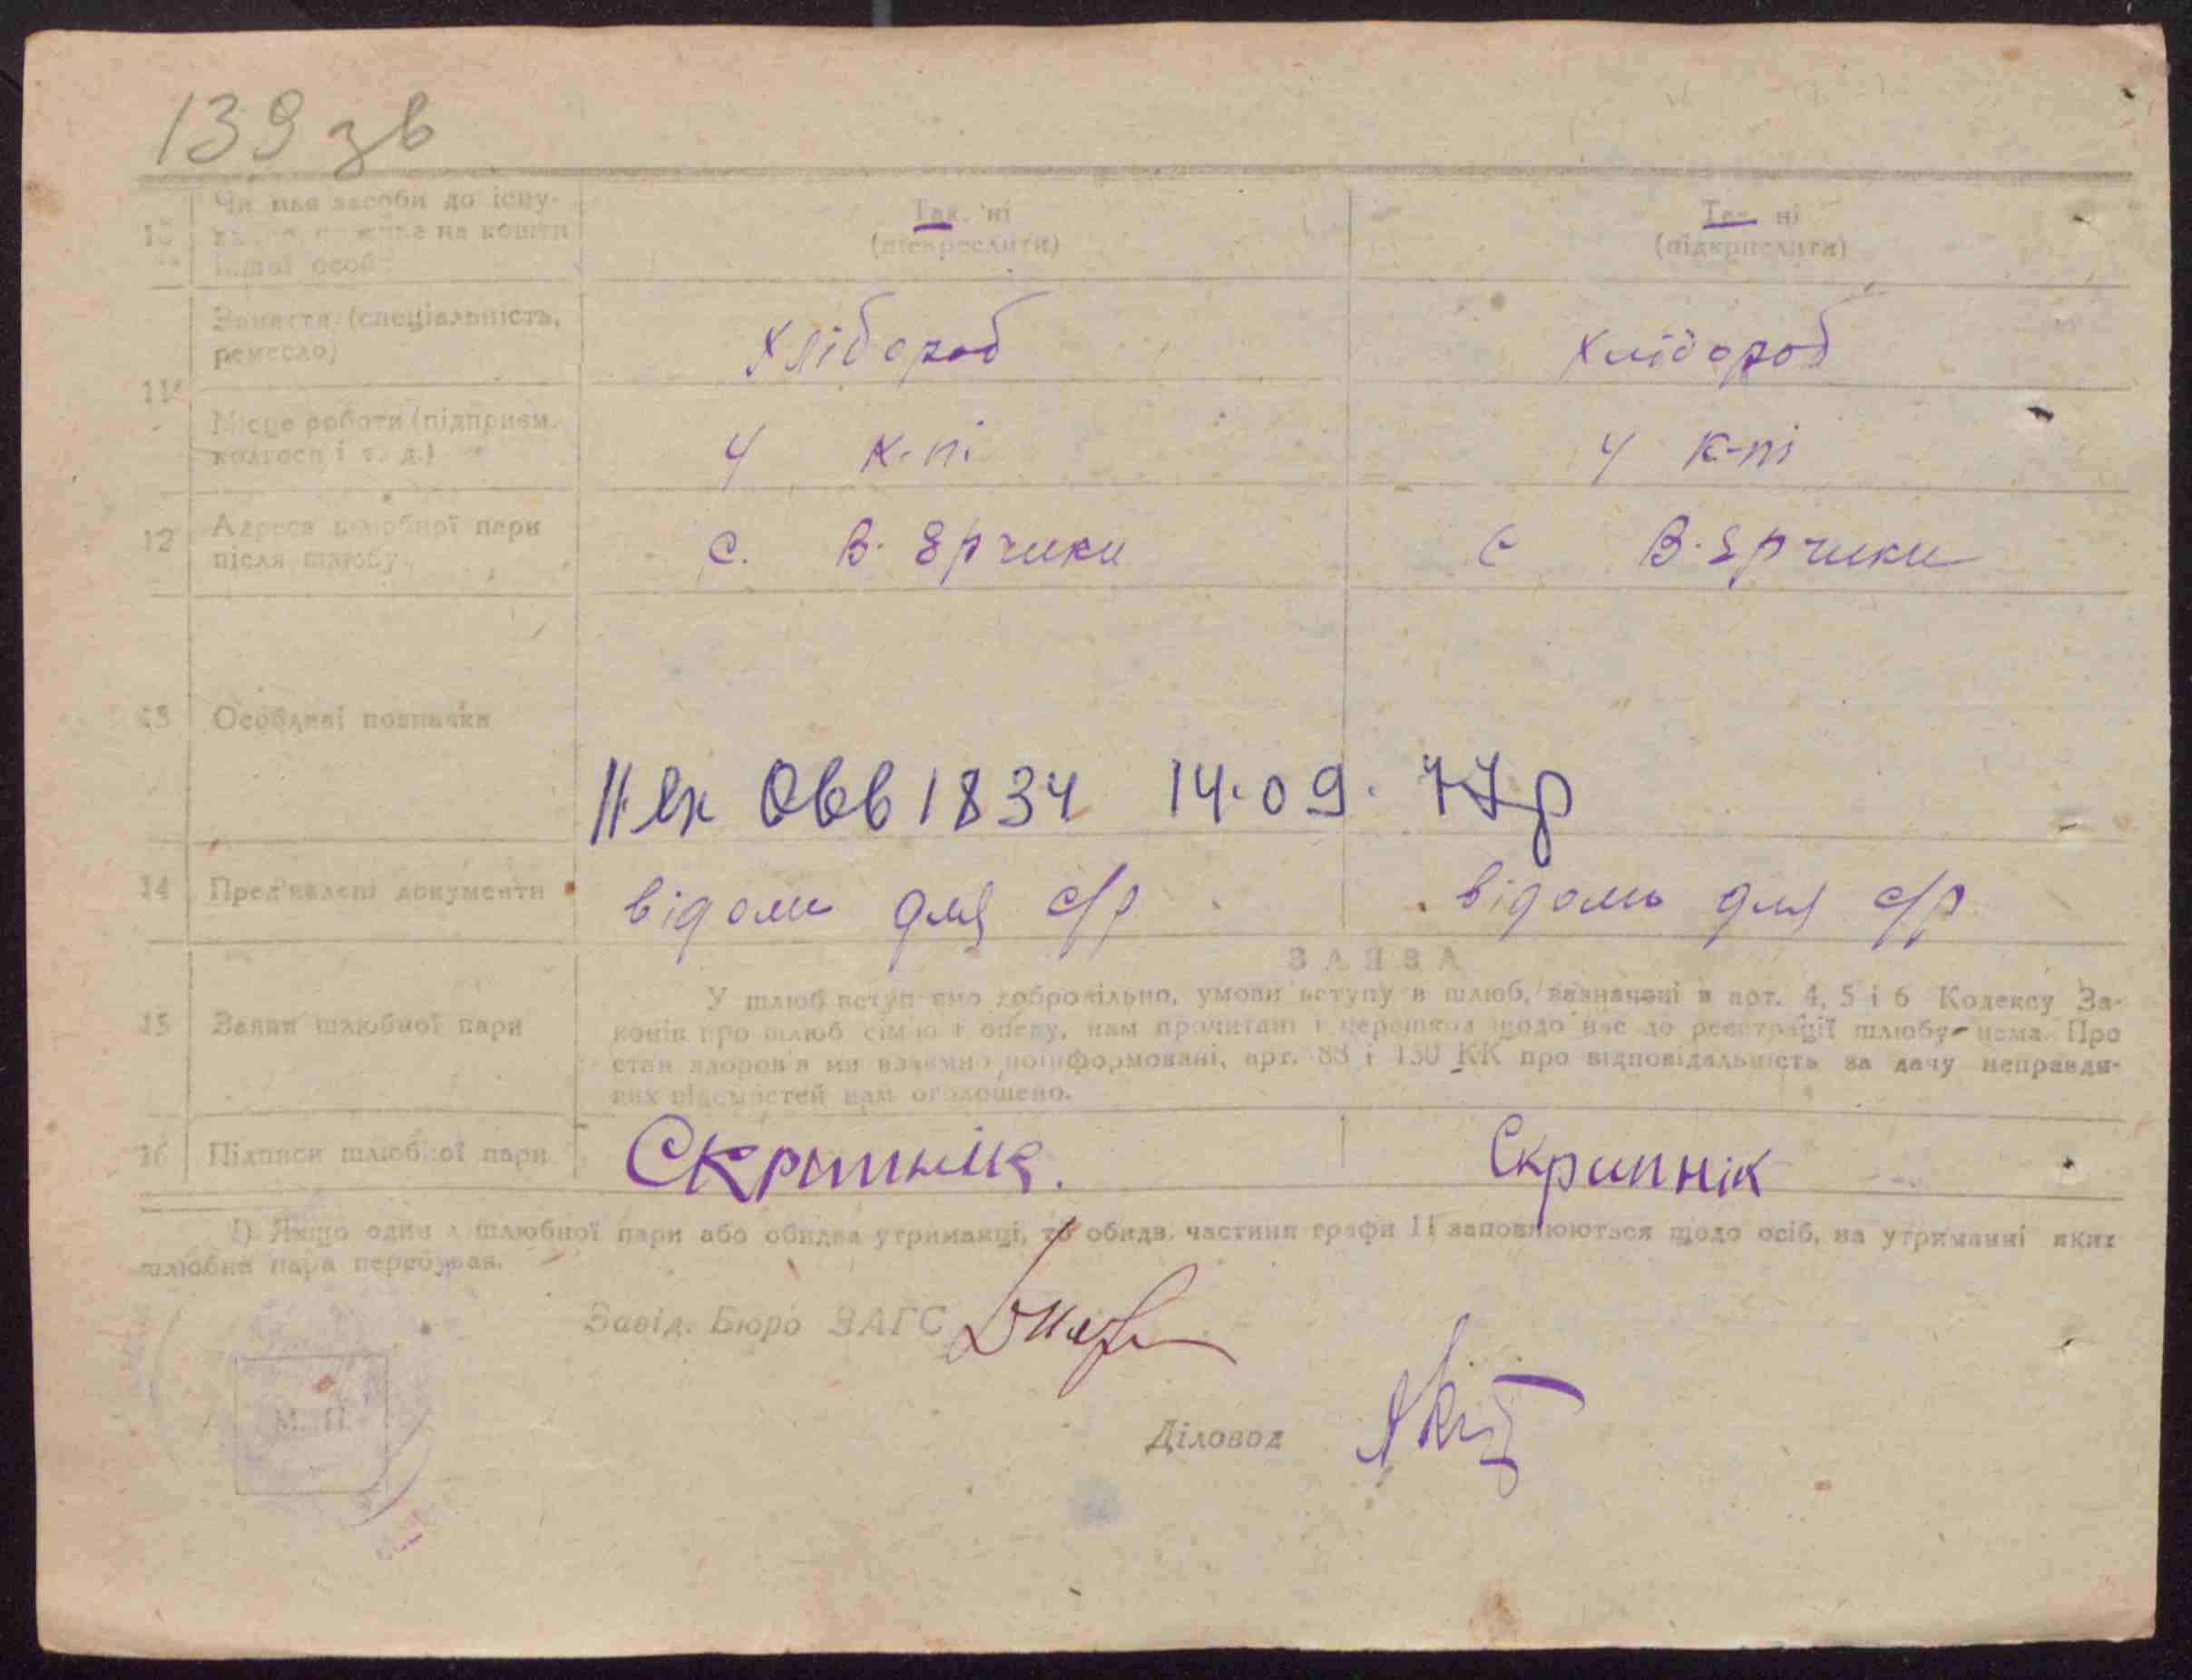 139 зв
10 Чи має засоби до існу-
на кошти
іншої особи
Так. ні
(підкреслити)
Так ні
(підкреслити)
11 Заняття (спеціальність,
ремесло)
Хлібороб
Хлібороб
Місце роботи (підприєм.
колгосп і т. д.)
У к-пі
У к-пі
12 Адреса шлюбної пари
після шлюбу
с. В. Єрчики
с В. Єрчики
13 Особливі позначки
1834 14.09. 77р
14 Пред'явлені документи
відоми для с/р
відомь для с/р
15 Заява шлюбної пари
ЗАЯВА
У шлюб вступаємо добровільно, умови вступу в шлюб, зазначені в арт. 4, 5 і 6 Кодексу За-
конів про шлюб сім'ю і опеку, нам прочитані і перешкод щодо нас до реєстрації шлюбу нема. Про
стан здоров'я ми взаємно поінформовані, арт. 88 і 130 КК про відповідальність за дачу неправди-
вих відомостей нам оголошено.
16 Підписи шлюбної пари
Скрипник.
Скрипнік
1) Якщо один з шлюбної пари або обидва утриманці, то обидв. частини графи 11 заповнюються щодо осіб, на утриманні яких
шлюбна пара перебував.
Завід. Бюро ЗАГС
М. П.
Діловод